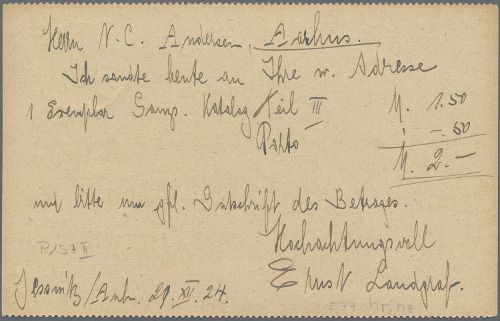 Herrn N. C. Andersen, Aarhus.
Ich sandte heute an Ihre w. Adresse
1 Exemplar Ganzs. Katalog Teil III M. 1.50
Porto " -.50
M. 2.-
und bitte um gfl. Gutschrift des Betrages.
Hochachtungsvoll
Ernst Landgraf.
P157 II
Jessnitz/Anh. 29. XII. 24.